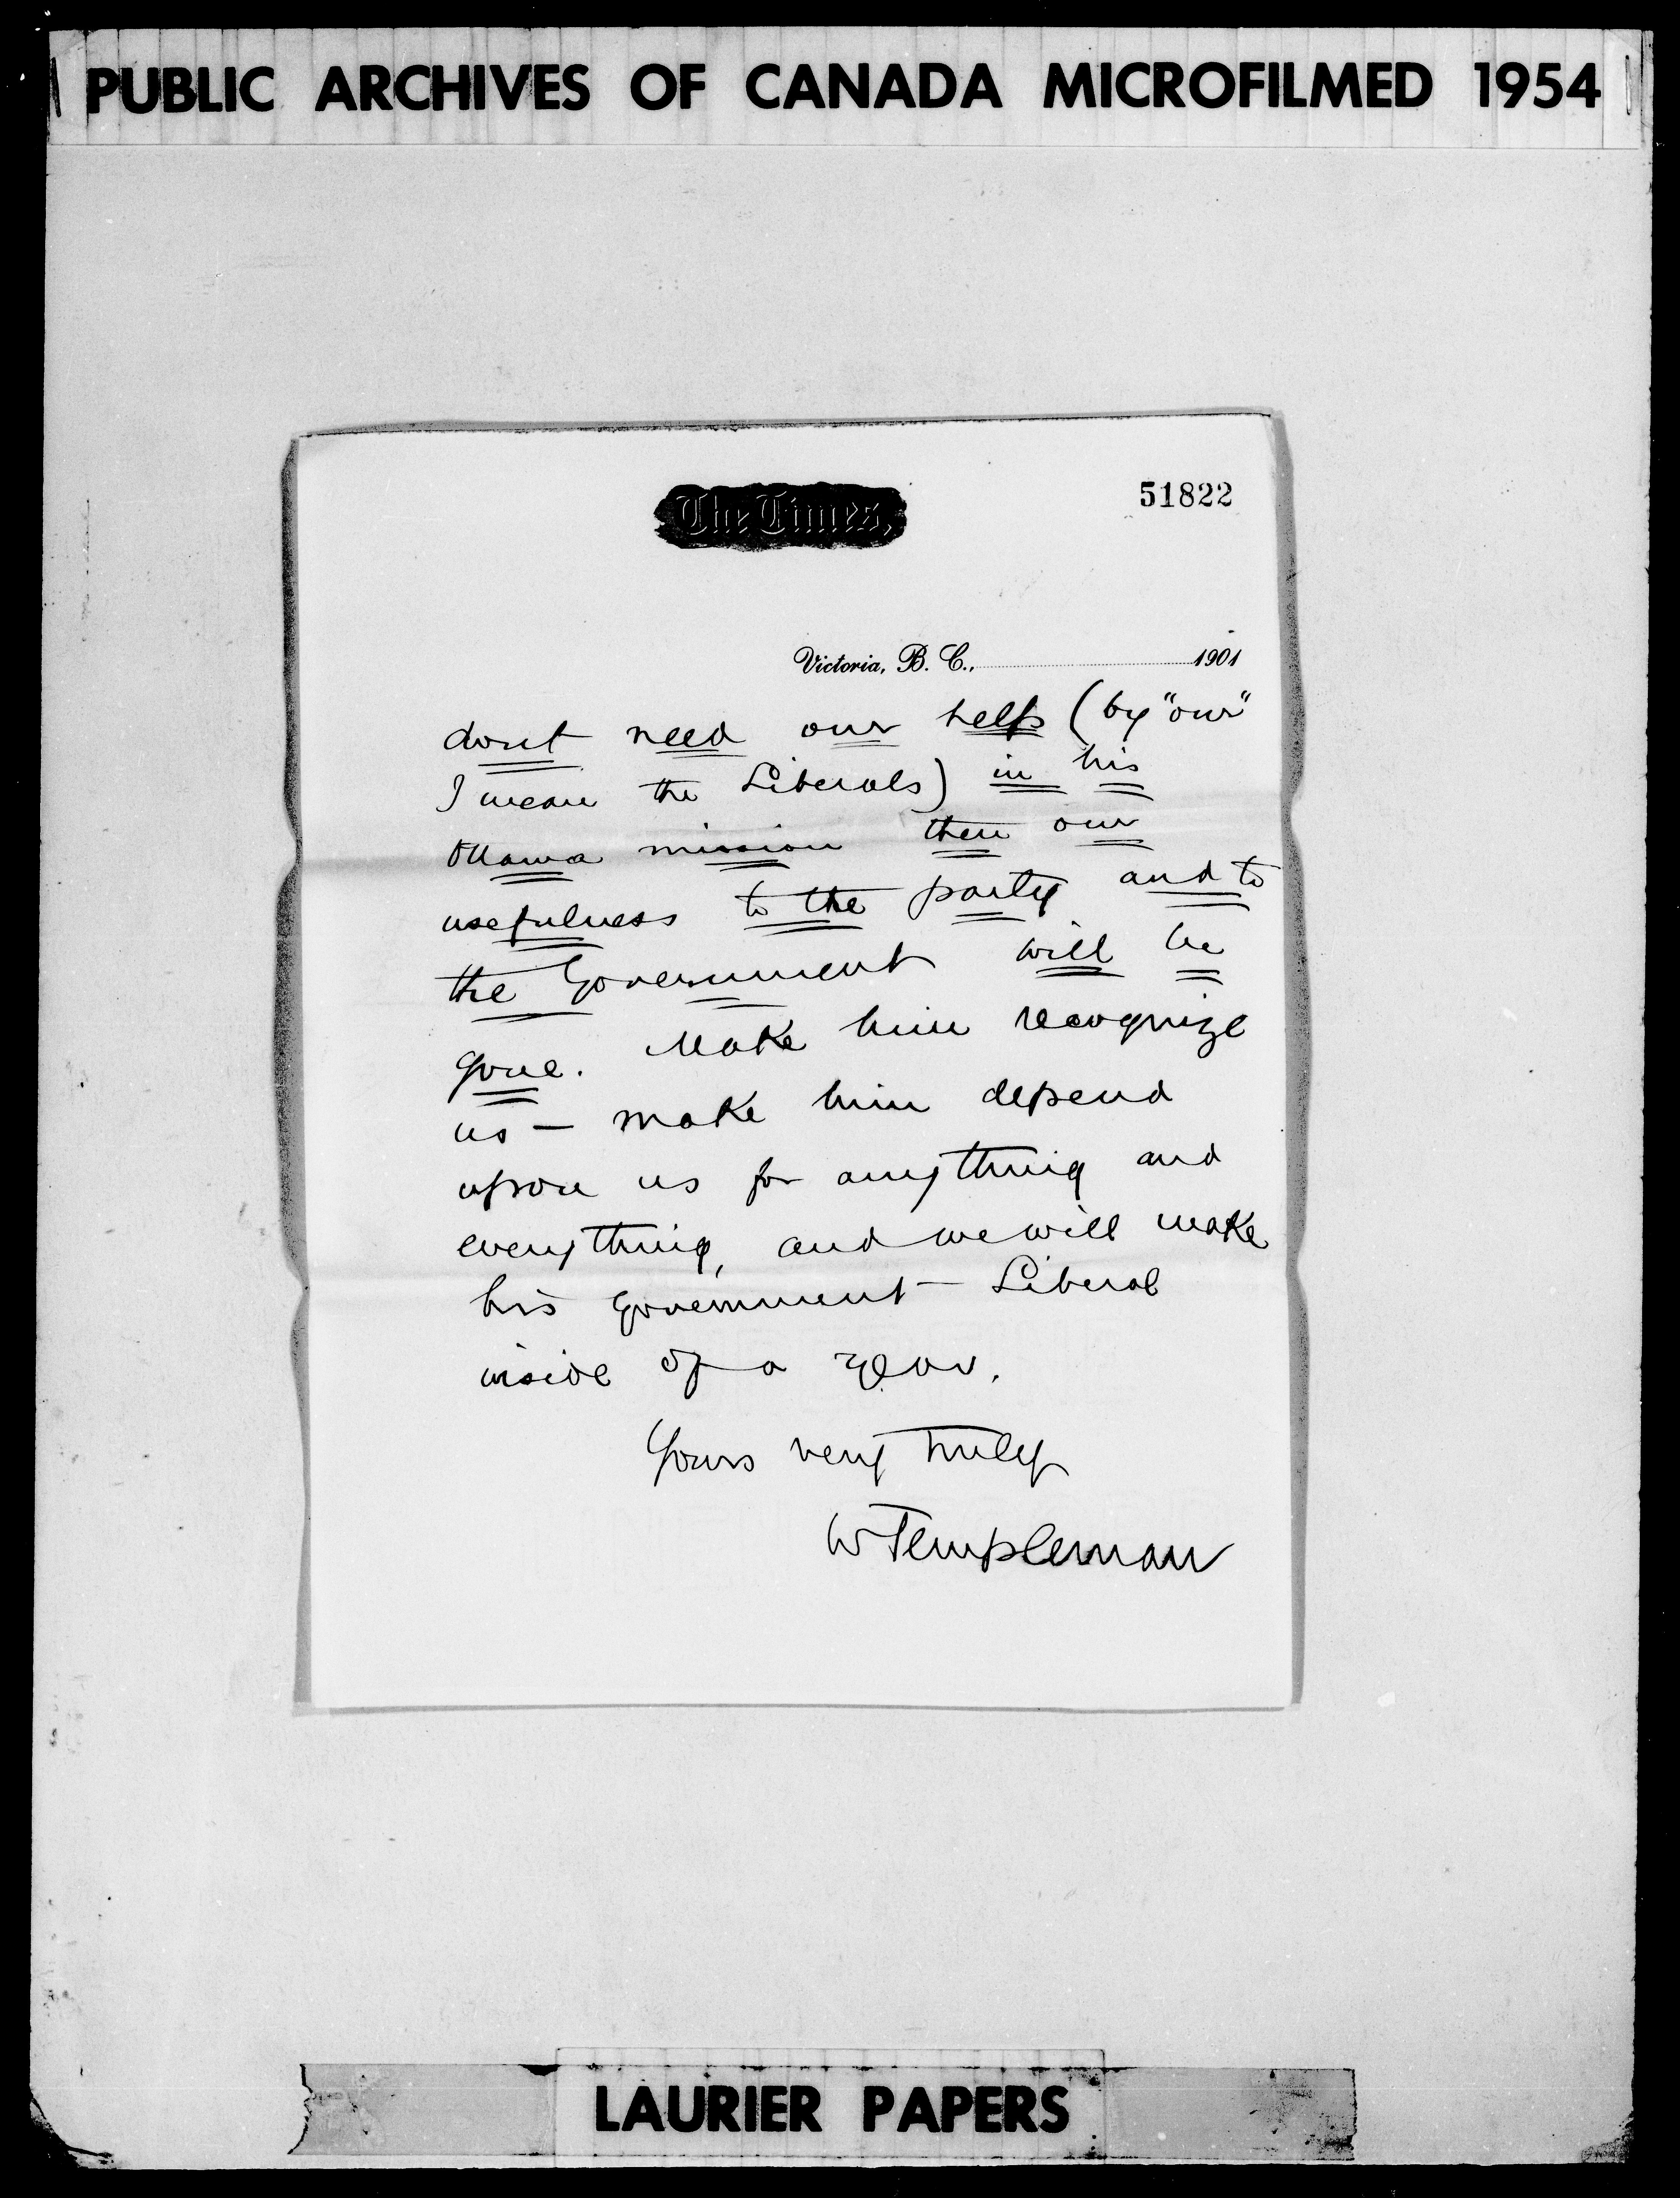 PUBLIC ARCHIVES OF CANADA MICROFILMED 1954
The Times,
51822
Victoria, B. C., 1901
dont need our help (by "our"
I mean the Liberals) in his
Ottawa mission then our
usefulness to the party and to
the Government will be
gone. Make him recognize
us - make him depend
upon us for anything and
everything, and we will make
his government - Liberal
inside of a year.
Yours very truly
W Templeman
LAURIER PAPERS